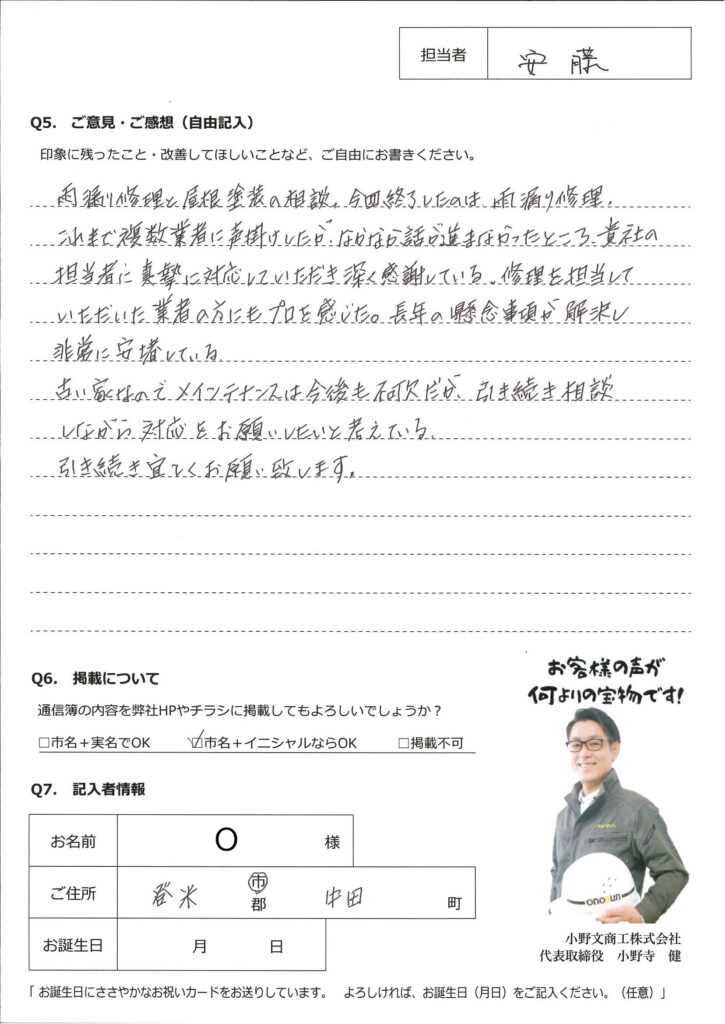 担当者 安藤
Q5. ご意見・ご感想（自由記入）
印象に残ったこと・改善してほしいことなど、ご自由にお書きください。
雨漏り修理と屋根塗装の相談。今回終了したのは、雨漏り修理。
これまで複数業者に声掛けしたが、なかなか話が進まなかったところ、貴社の
担当者に真摯に対応していただき深く感謝している。修理を担当して
いただいた業者の方にもプロを感じた。長年の懸念事項が解決し
非常に安堵している。
古い家なのでメインテナンスは今後も不可欠だが、引き続き相談
しながら対応をお願いしたいと考えている。
引き続き宜しくお願い致します。
お客様の声が
何よりの宝物です!
Q6. 掲載について
通信簿の内容を弊社HPやチラシに掲載してもよろしいでしょうか？
□市名＋実名でOK ☑市名＋イニシャルならOK □掲載不可
Q7. 記入者情報
お名前 O 様
ご住所 登米 市 郡 中田 町
お誕生日 月 日
onoBun
小野文商工株式会社
代表取締役 小野寺 健
「 お誕生日にささやかなお祝いカードをお送りしています。 よろしければ、お誕生日（月日）をご記入ください。（任意）」